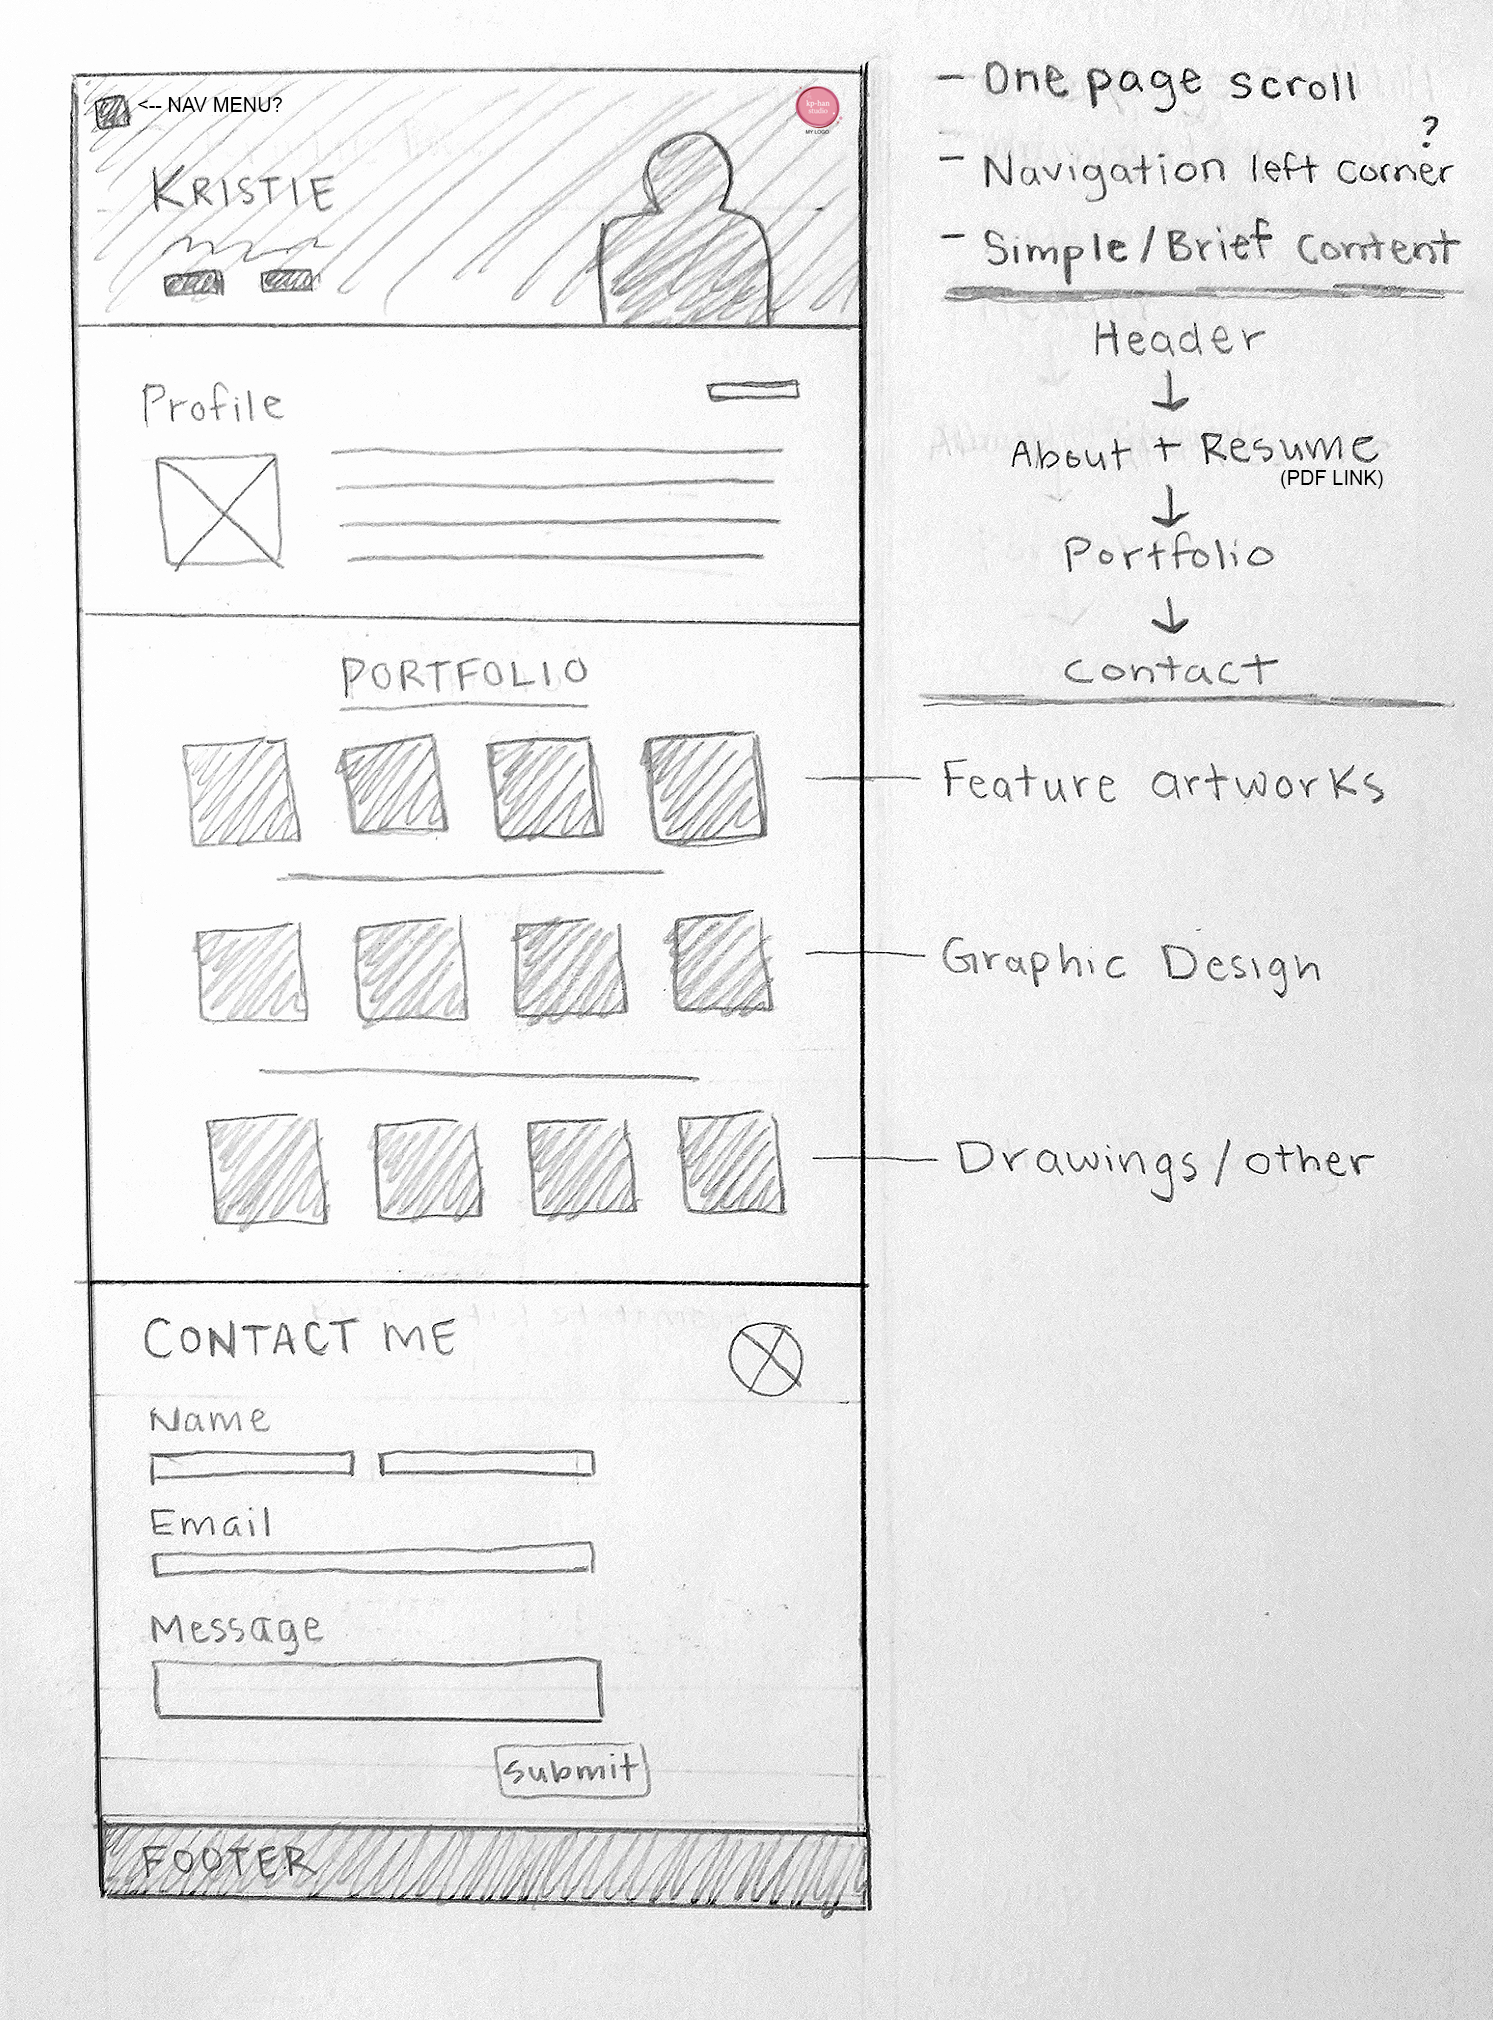 <-- NAV MENU?
kp-han
studio
MY LOGO
KRISTIE
Profile
PORTFOLIO
CONTACT ME
Name
Email
Message
Submit
FOOTER
- One page scroll
?
- Navigation left corner
- Simple/Brief content
Header
↓
About + Resume
(PDF LINK)
↓
Portfolio
↓
Contact
Feature artworks
Graphic Design
Drawings/other